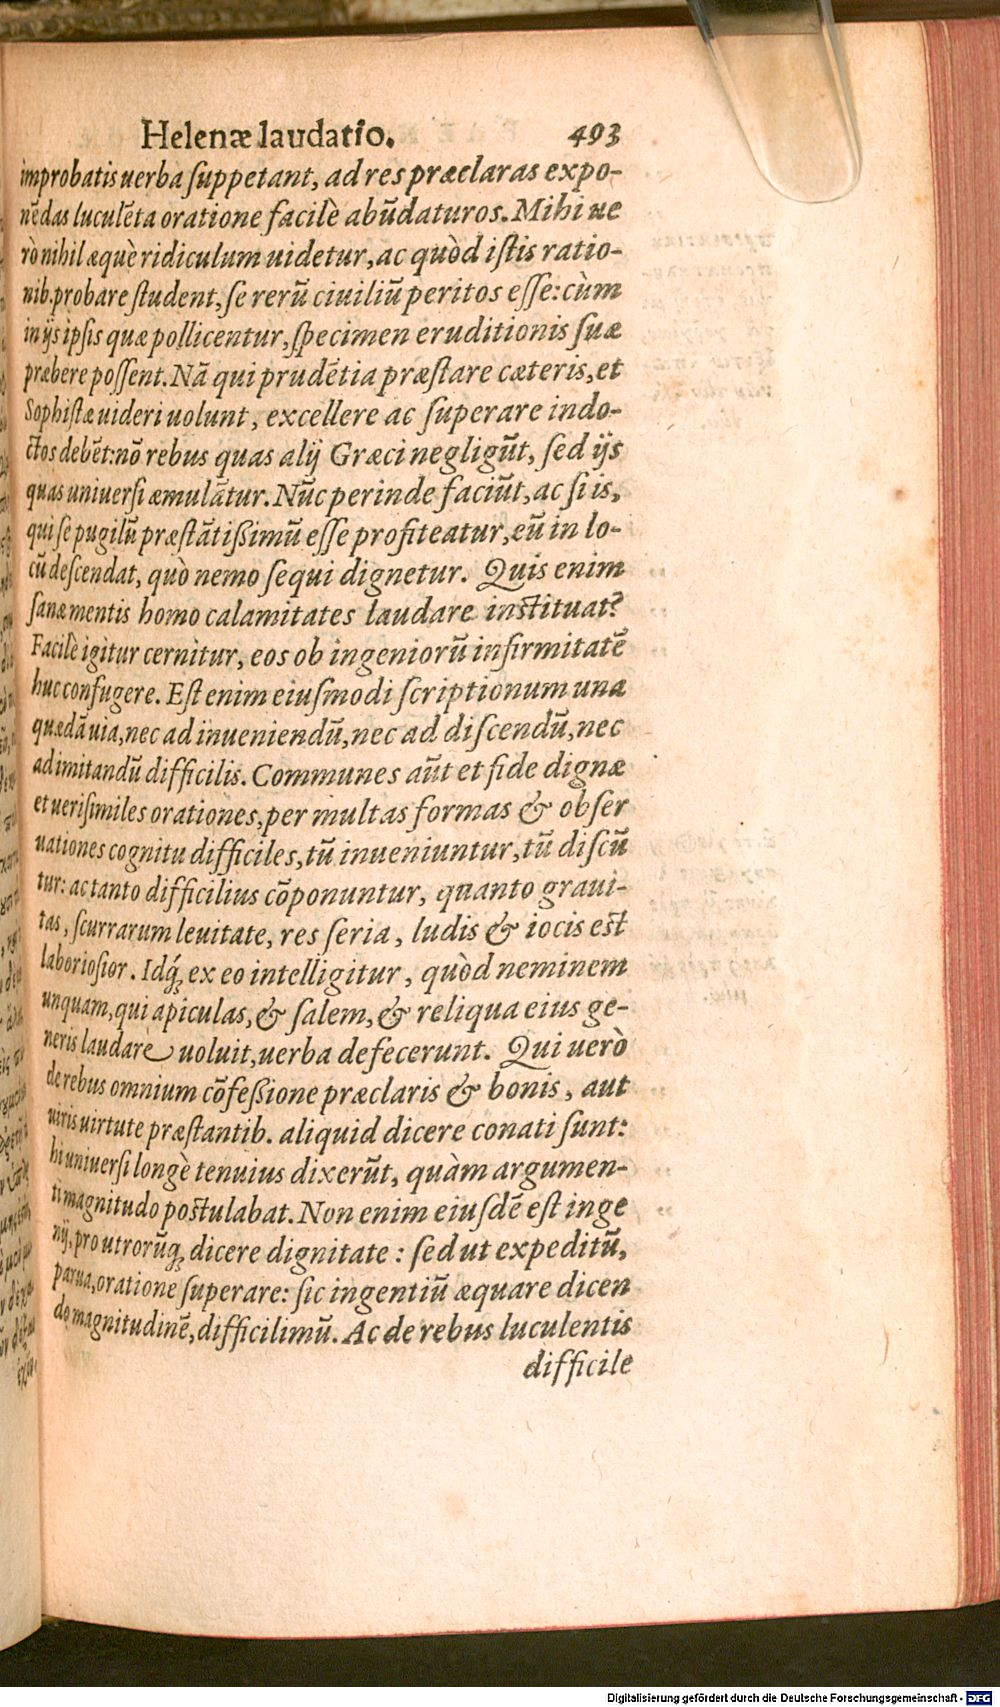 Helenæ laudatio. 493
improbatis uerba ſuppetant, ad res præclaras expo-
nẽdas luculẽta oratione facilè abũdaturos. Mihi ue
rò nihil æquè ridiculum uidetur, ac quòd iſtis ratio-
nib. probare ſtudent, ſe rerũ ciuiliũ peritos eſſe: cùm
in ijs ipſis quæ pollicentur, ſpecimen eruditionis ſuæ
præbere poſſent. Nã qui prudẽtia præſtare cæteris, et
Sophiſtæ uideri uolunt, excellere ac ſuperare indo-
ctos debẽt: nõ rebus quas alij Græci negligũt, ſed ijs
quas uniuerſi æmulãtur. Nũc perinde faciũt, ac ſi is,
qui ſe pugilũ præſtãtißimũ eſſe profiteatur, eũ in lo-
cũ deſcendat, quò nemo ſequi dignetur. Quis enim
ſanæ mentis homo calamitates laudare inſtituat?
Facilè igitur cernitur, eos ob ingeniorũ infirmitatẽ
huc confugere. Eſt enim eiuſmodi ſcriptionum una
quædã uia, nec ad inueniendũ, nec ad diſcendũ, nec
ad imitandũ difficilis. Communes aũt et fide dignæ
et ueriſimiles orationes, per multas formas & obſer
uationes cognitu difficiles, tũ inueniuntur, tũ diſcũ
tur: ac tanto difficilius cõponuntur, quanto graui-
tas, ſcurrarum leuitate, res ſeria, ludis & iocis eſt
laborioſior. Idq́; ex eo intelligitur, quòd neminem
unquam, qui apiculas, & ſalem, & reliqua eius ge-
neris laudare uoluit, uerba defecerunt. Qui uerò
de rebus omnium cõfeßione præclaris & bonis, aut
uiris uirtute præſtantib. aliquid dicere conati ſunt:
hi uniuerſi longè tenuius dixerũt, quàm argumen-
ti magnitudo poſtulabat. Non enim eiuſdẽ eſt inge
nij, pro utrorũq; dicere dignitate: ſed ut expeditũ,
parua, oratione ſuperare: ſic ingentiũ æquare dicen
do magnitudinẽ, difficilimũ. Ac de rebus luculentis
difficile
Digitalisierung gefördert durch die Deutsche Forschungsgemeinschaft - DFG